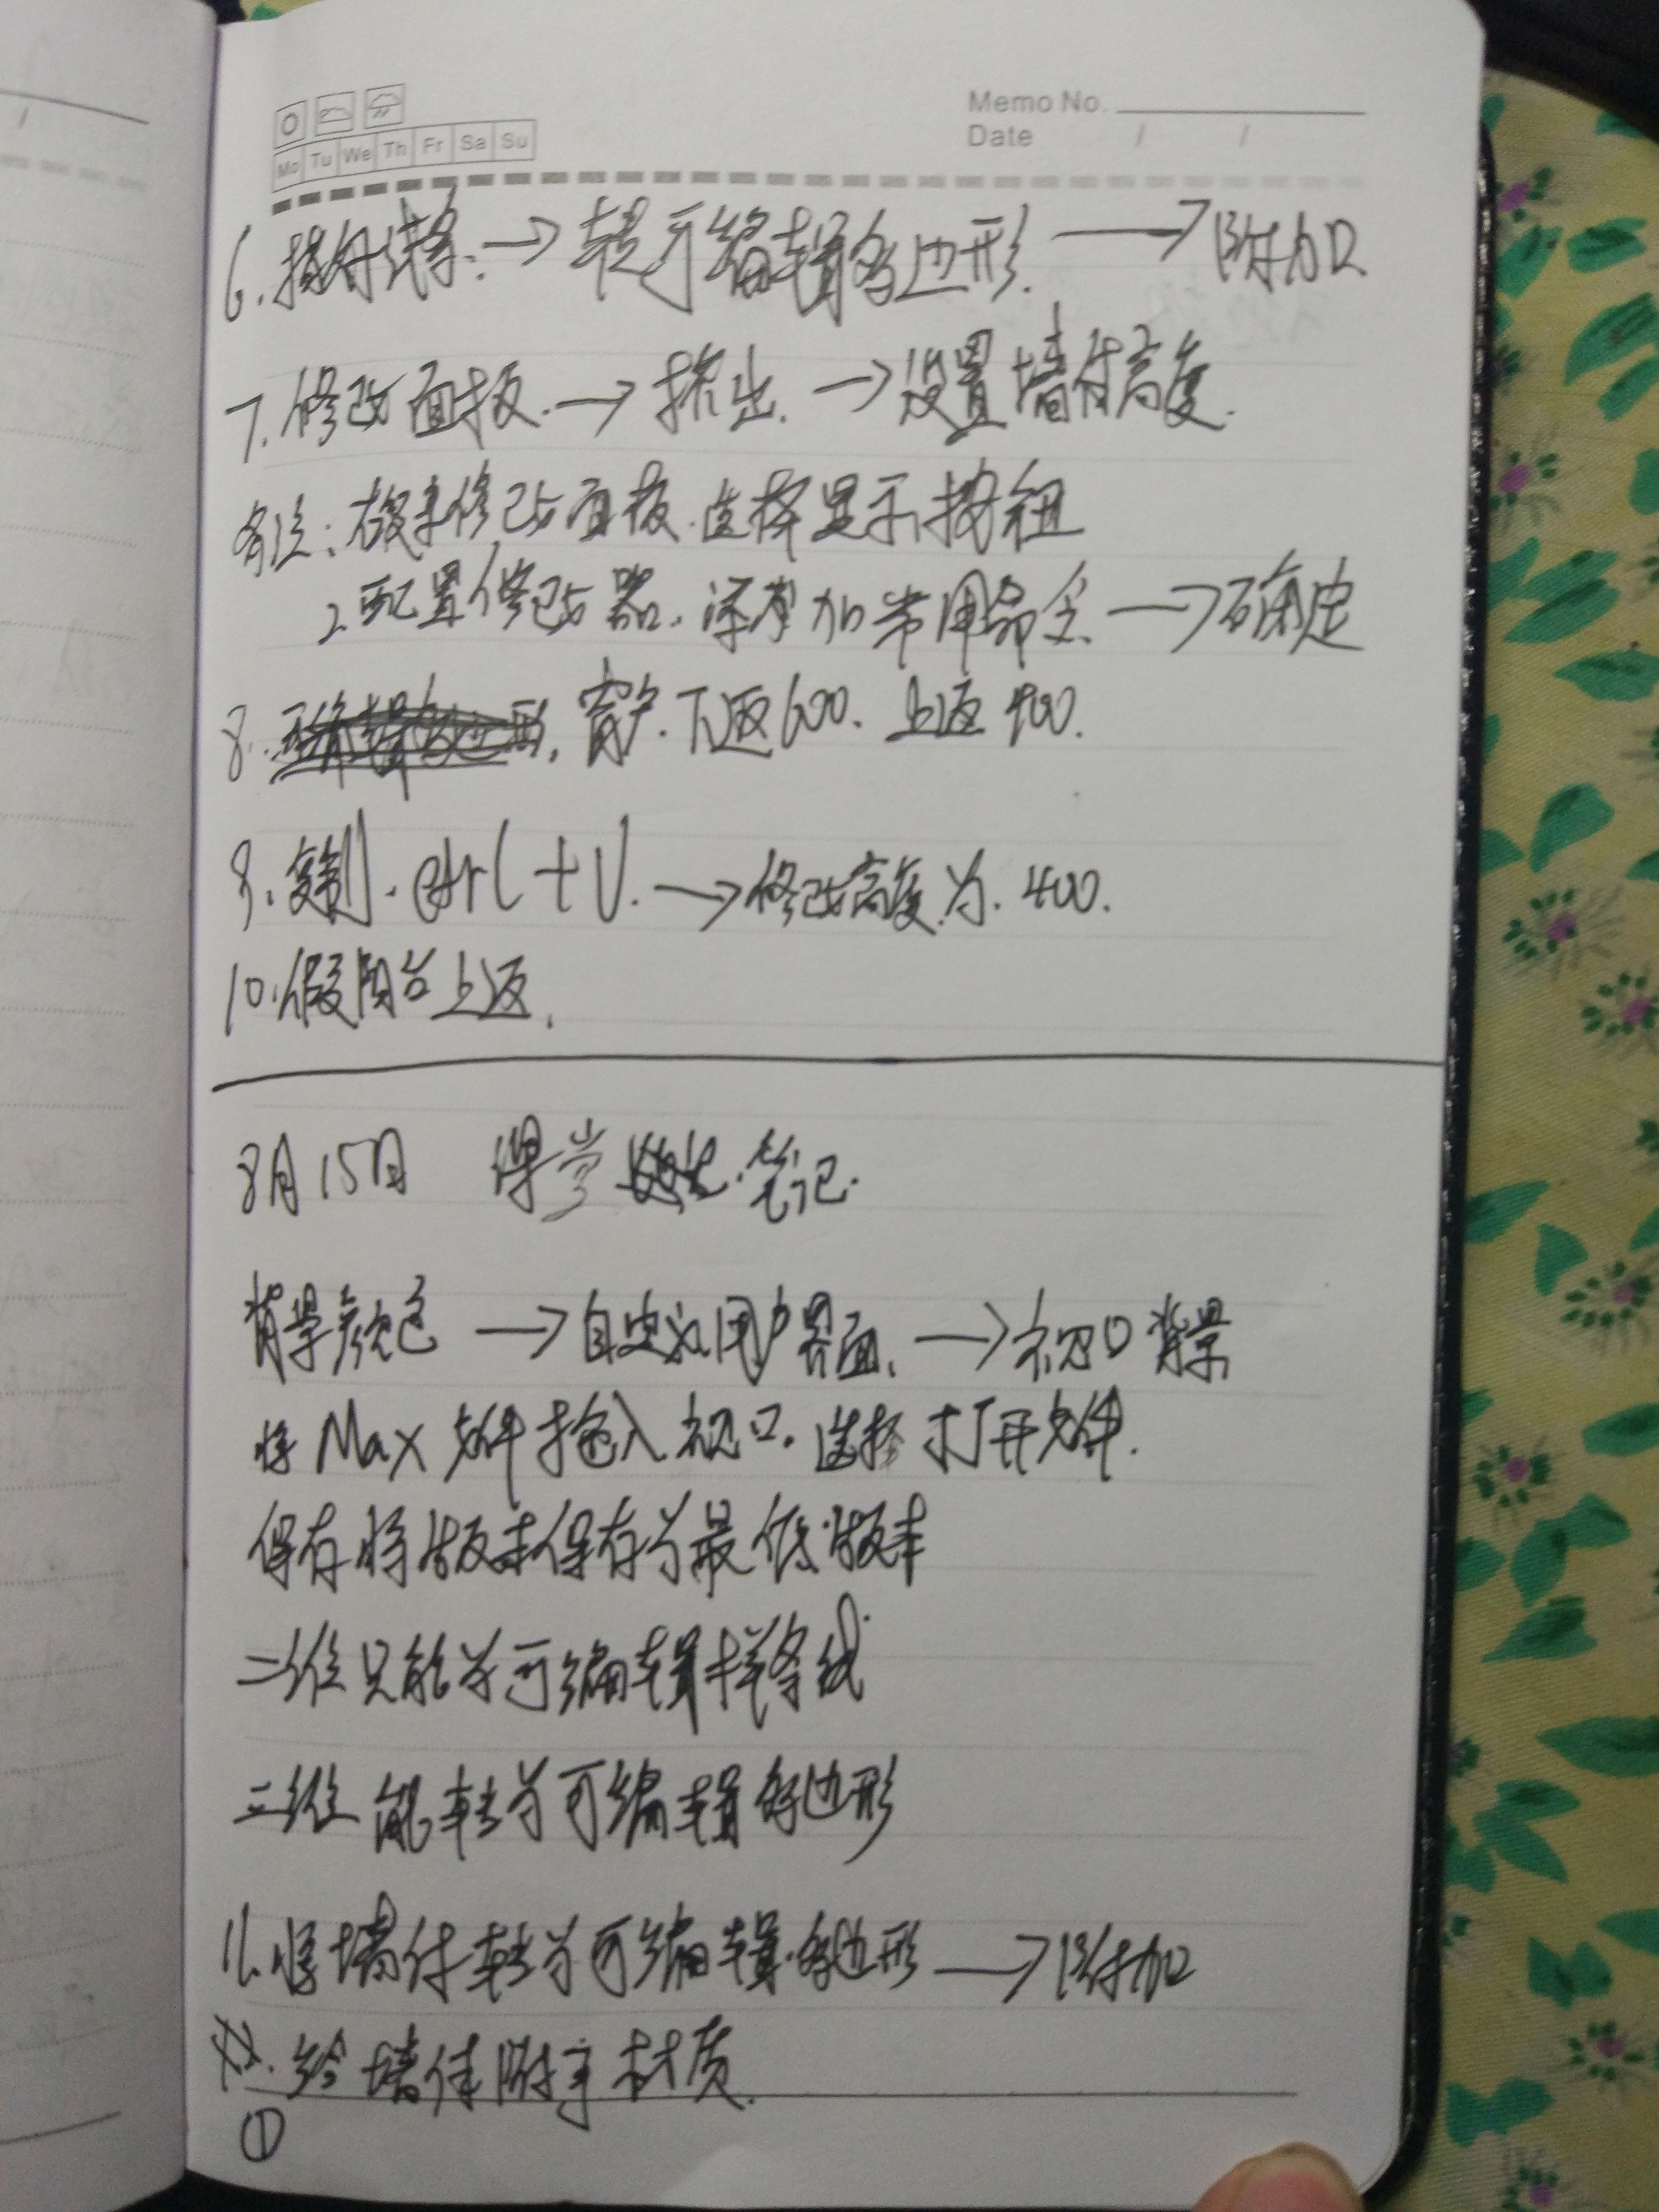 Memo No.
Date / /
Mo Tu We Th Fr Sa Su
6. → 转可编辑多边形. → 附加
7. 修改面板. → 挤出. → 设置墙体高度.
备注: 修改面板. 选择显示按钮
2. 配置修改器. 添加常用命令 → 确定
8. 窗户. 下返600. 上返400.
9. 复制. ctrl + V. → 修改高度为. 400.
10. 假阳台上返.
8月15日 课堂 笔记.
背景颜色 → 自定义用户界面. → 视口背景
将 Max 文件拖入视口. 选择打开文件.
保存将版本保存为最低版本
二维只能为可编辑样条线
三维 能转为可编辑多边形
11. 将墙体转为可编辑多边形 → 附加
给墙体附予材质.
①